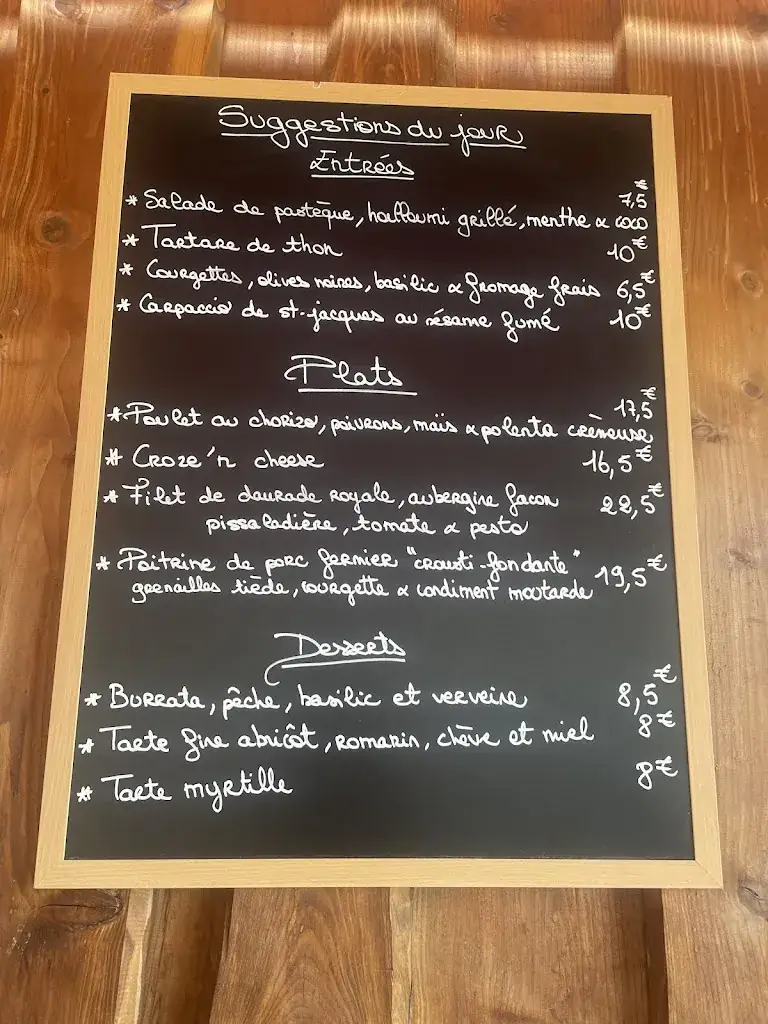 Suggestions du jour
Entrées
* Salade de pastèque, halloumi grillé, menthe & coco 7,5€
* Tartare de thon 10€
* Courgettes, olives noires, basilic & fromage frais 6,5€
* Carpaccio de st-jacques au sésame fumé 10€
Plats
* Poulet au chorizo, poivrons, maïs & polenta crèmeuse 17,5€
* Croze'n cheese 16,5€
* Filet de daurade royale, aubergine facon 22,5€
pissaladière, tomate & pesto
* Poitrine de porc fermier "crousti-fondante" 19,5€
grenailles tiède, courgette & condiment moutarde
Desserts
* Burrata, pêche, basilic et verveine 8,5€
* Tarte fine abricôt, romarin, chève et miel 8€
* Tarte myrtille 8€